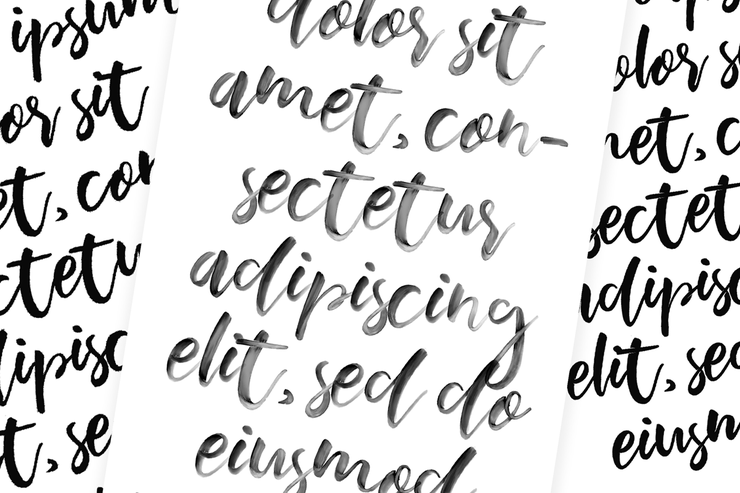 ipsum
or sit
et, con
ctetu
lipisc
t, se
dolor sit
amet, con-
sectetur
adipiscing
elit, sed do
eiusmod
olor s
net, c
sectet
adipis
elit, sec
eiusm